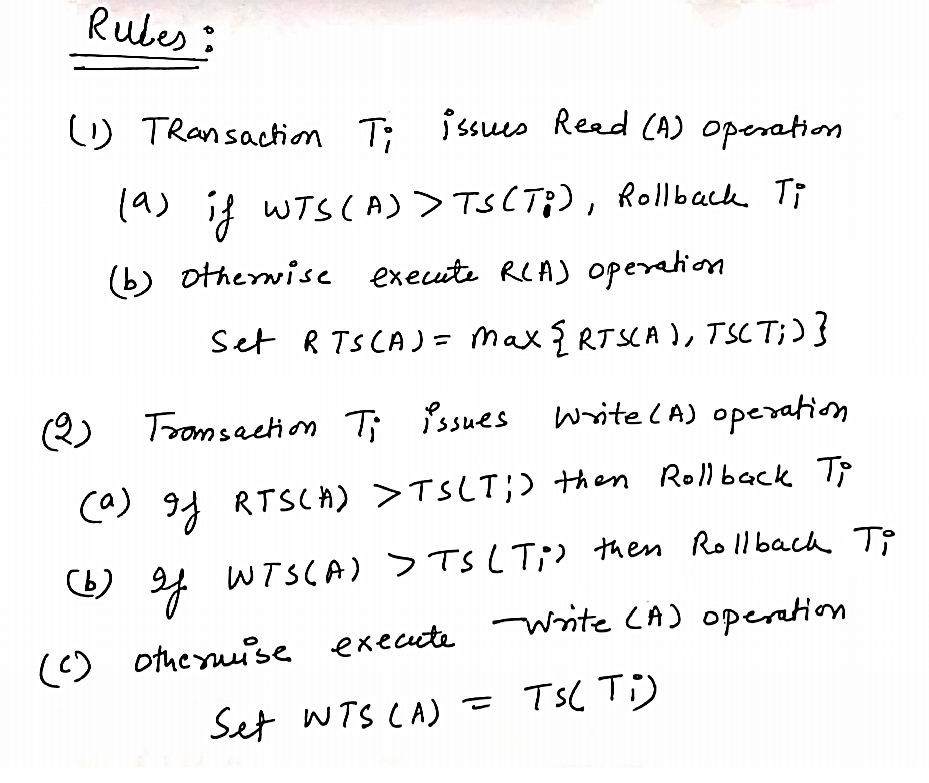 Rules:
(1) TRansaction Ti issues Read (A) operation
(a) if WTS(A) > TS(Ti), Rollback Ti
(b) otherwise execute R(A) operation
Set RTS(A) = max { RTS(A), TS(Ti) }
(2) Transaction Ti issues Write(A) operation
(a) If RTS(A) > TS(Ti) then Rollback Ti
(b) If WTS(A) > TS(Ti) then Rollback Ti
(c) otherwise execute Write (A) operation
Set WTS(A) = TS(Ti)